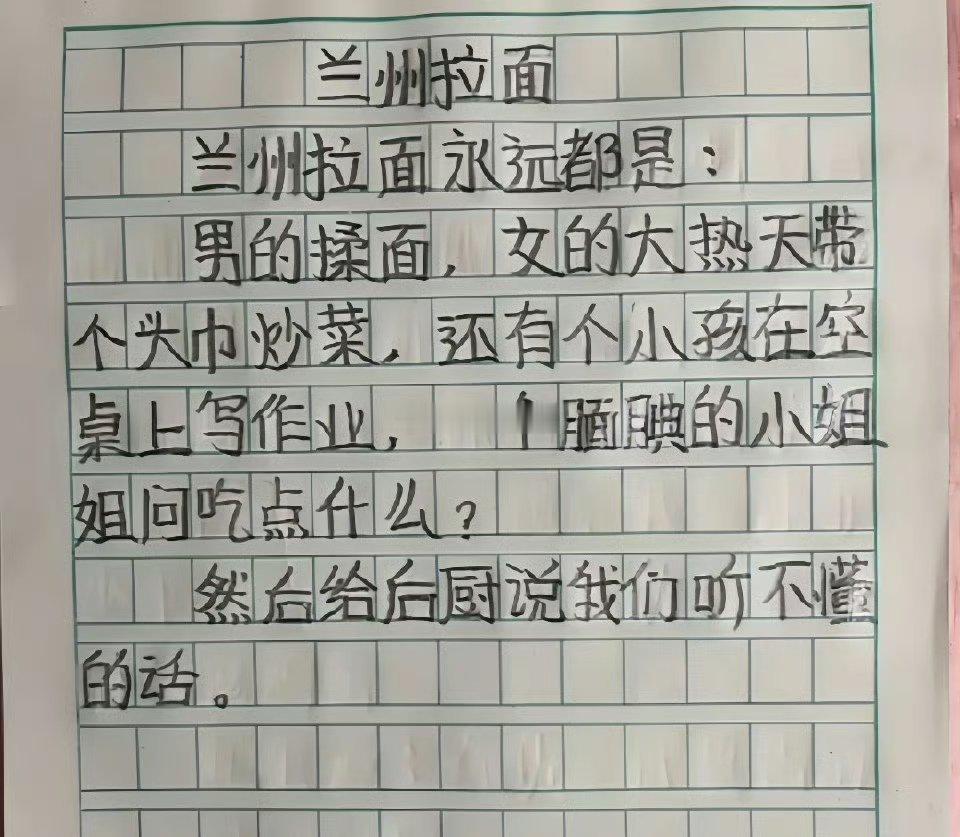 兰州拉面
兰州拉面永远都是：
男的揉面，女的大热天带
个头巾炒菜，还有个小孩在空
桌上写作业，个腼腆的小姐
姐问吃点什么？
然后给后厨说我们听不懂
的话。